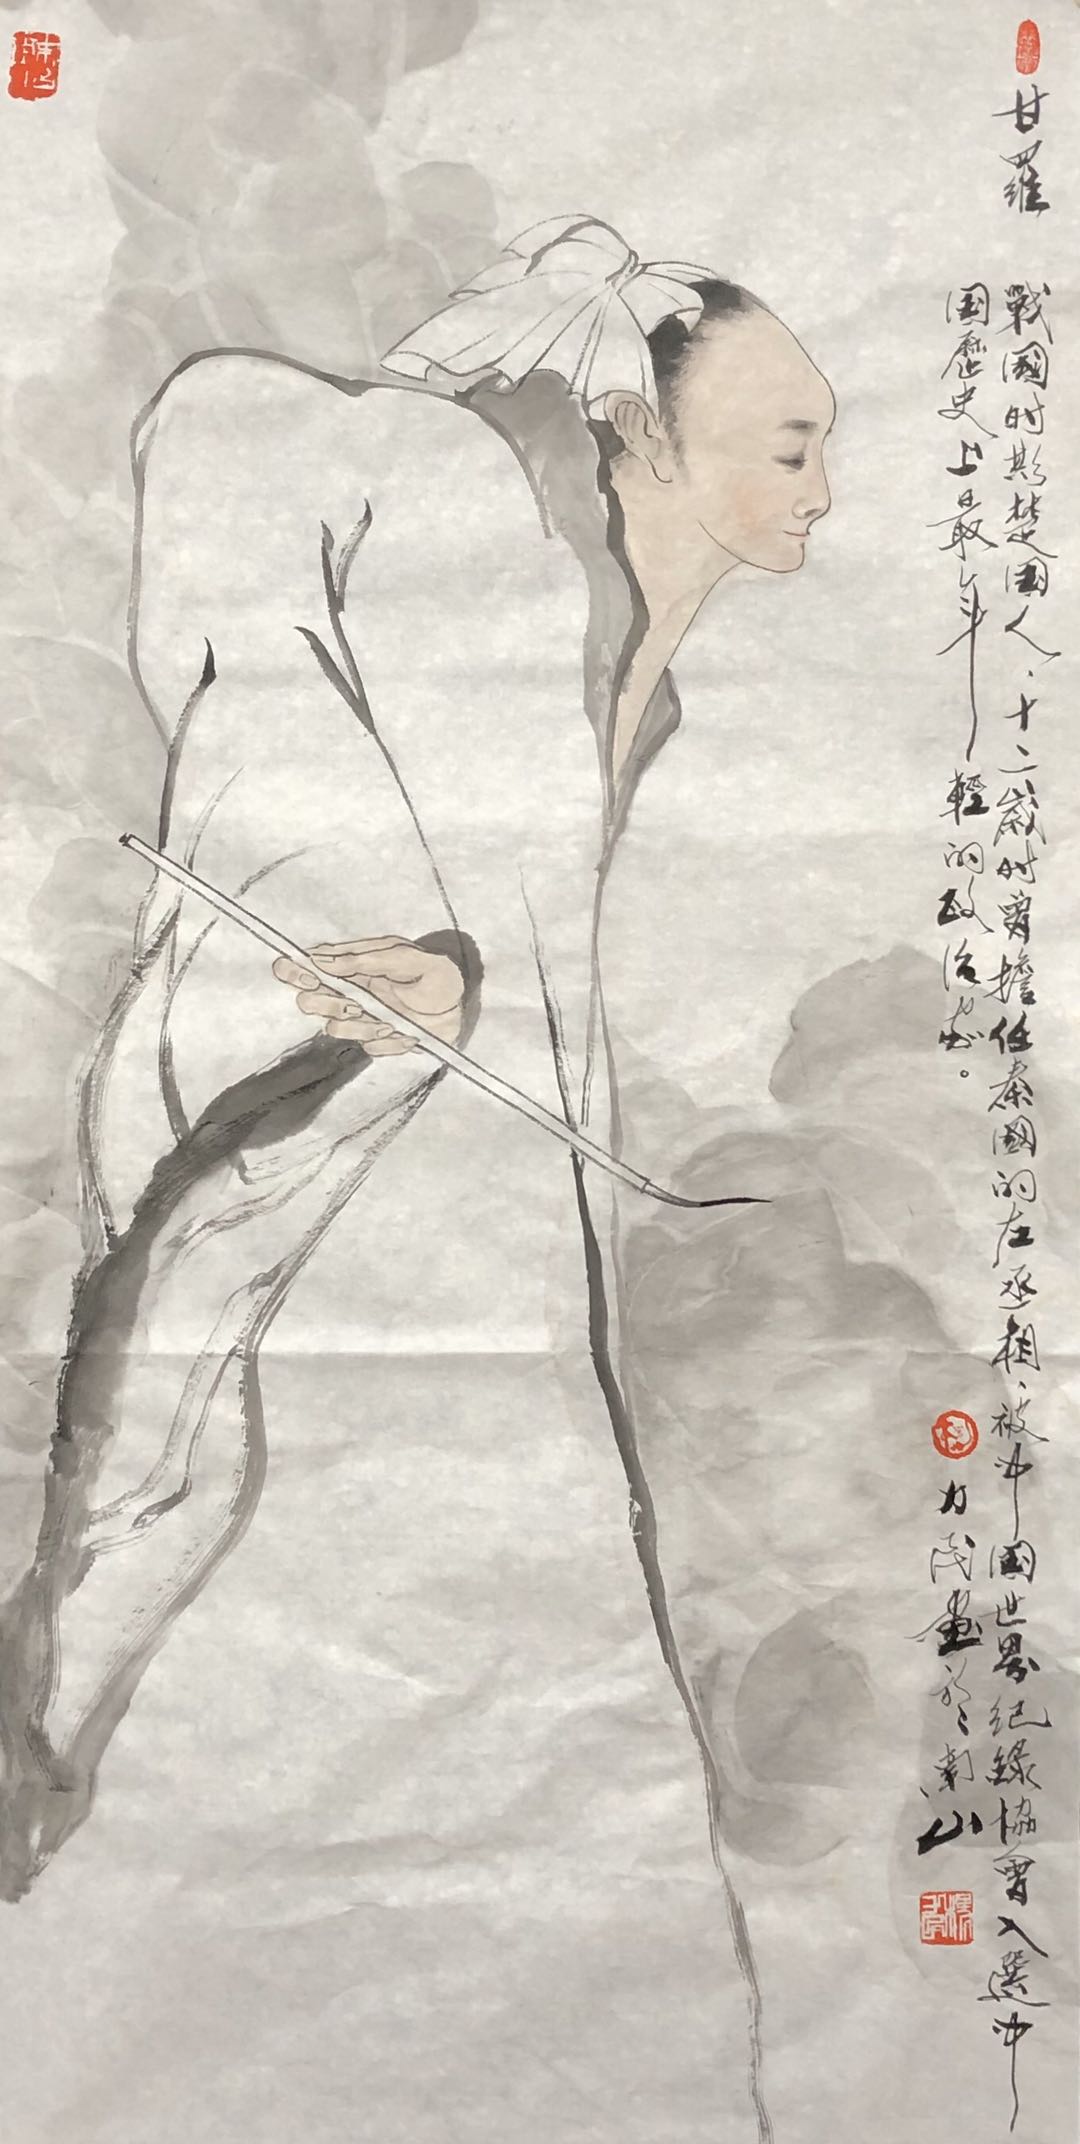 甘羅
戰國时期楚國人、十二歲时曾擔任秦國的左丞相、被中國世界纪錄協會入選中
国歷史上最年輕的政治家。
力茂畫於南山